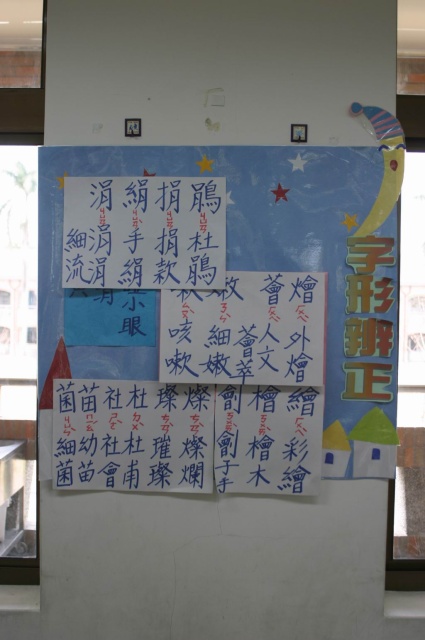 字形辨正
鵑 杜鵑
捐 捐款
絹 手絹
涓 細流涓涓
燴 外燴
薈 人文薈萃
嫩 細嫩
咳嗽
眼
繪 彩繪
檜 檜木
劊 劊子手
燦 燦爛
璨 璀璨
杜 杜甫
社 社會
苗 幼苗
菌 細菌